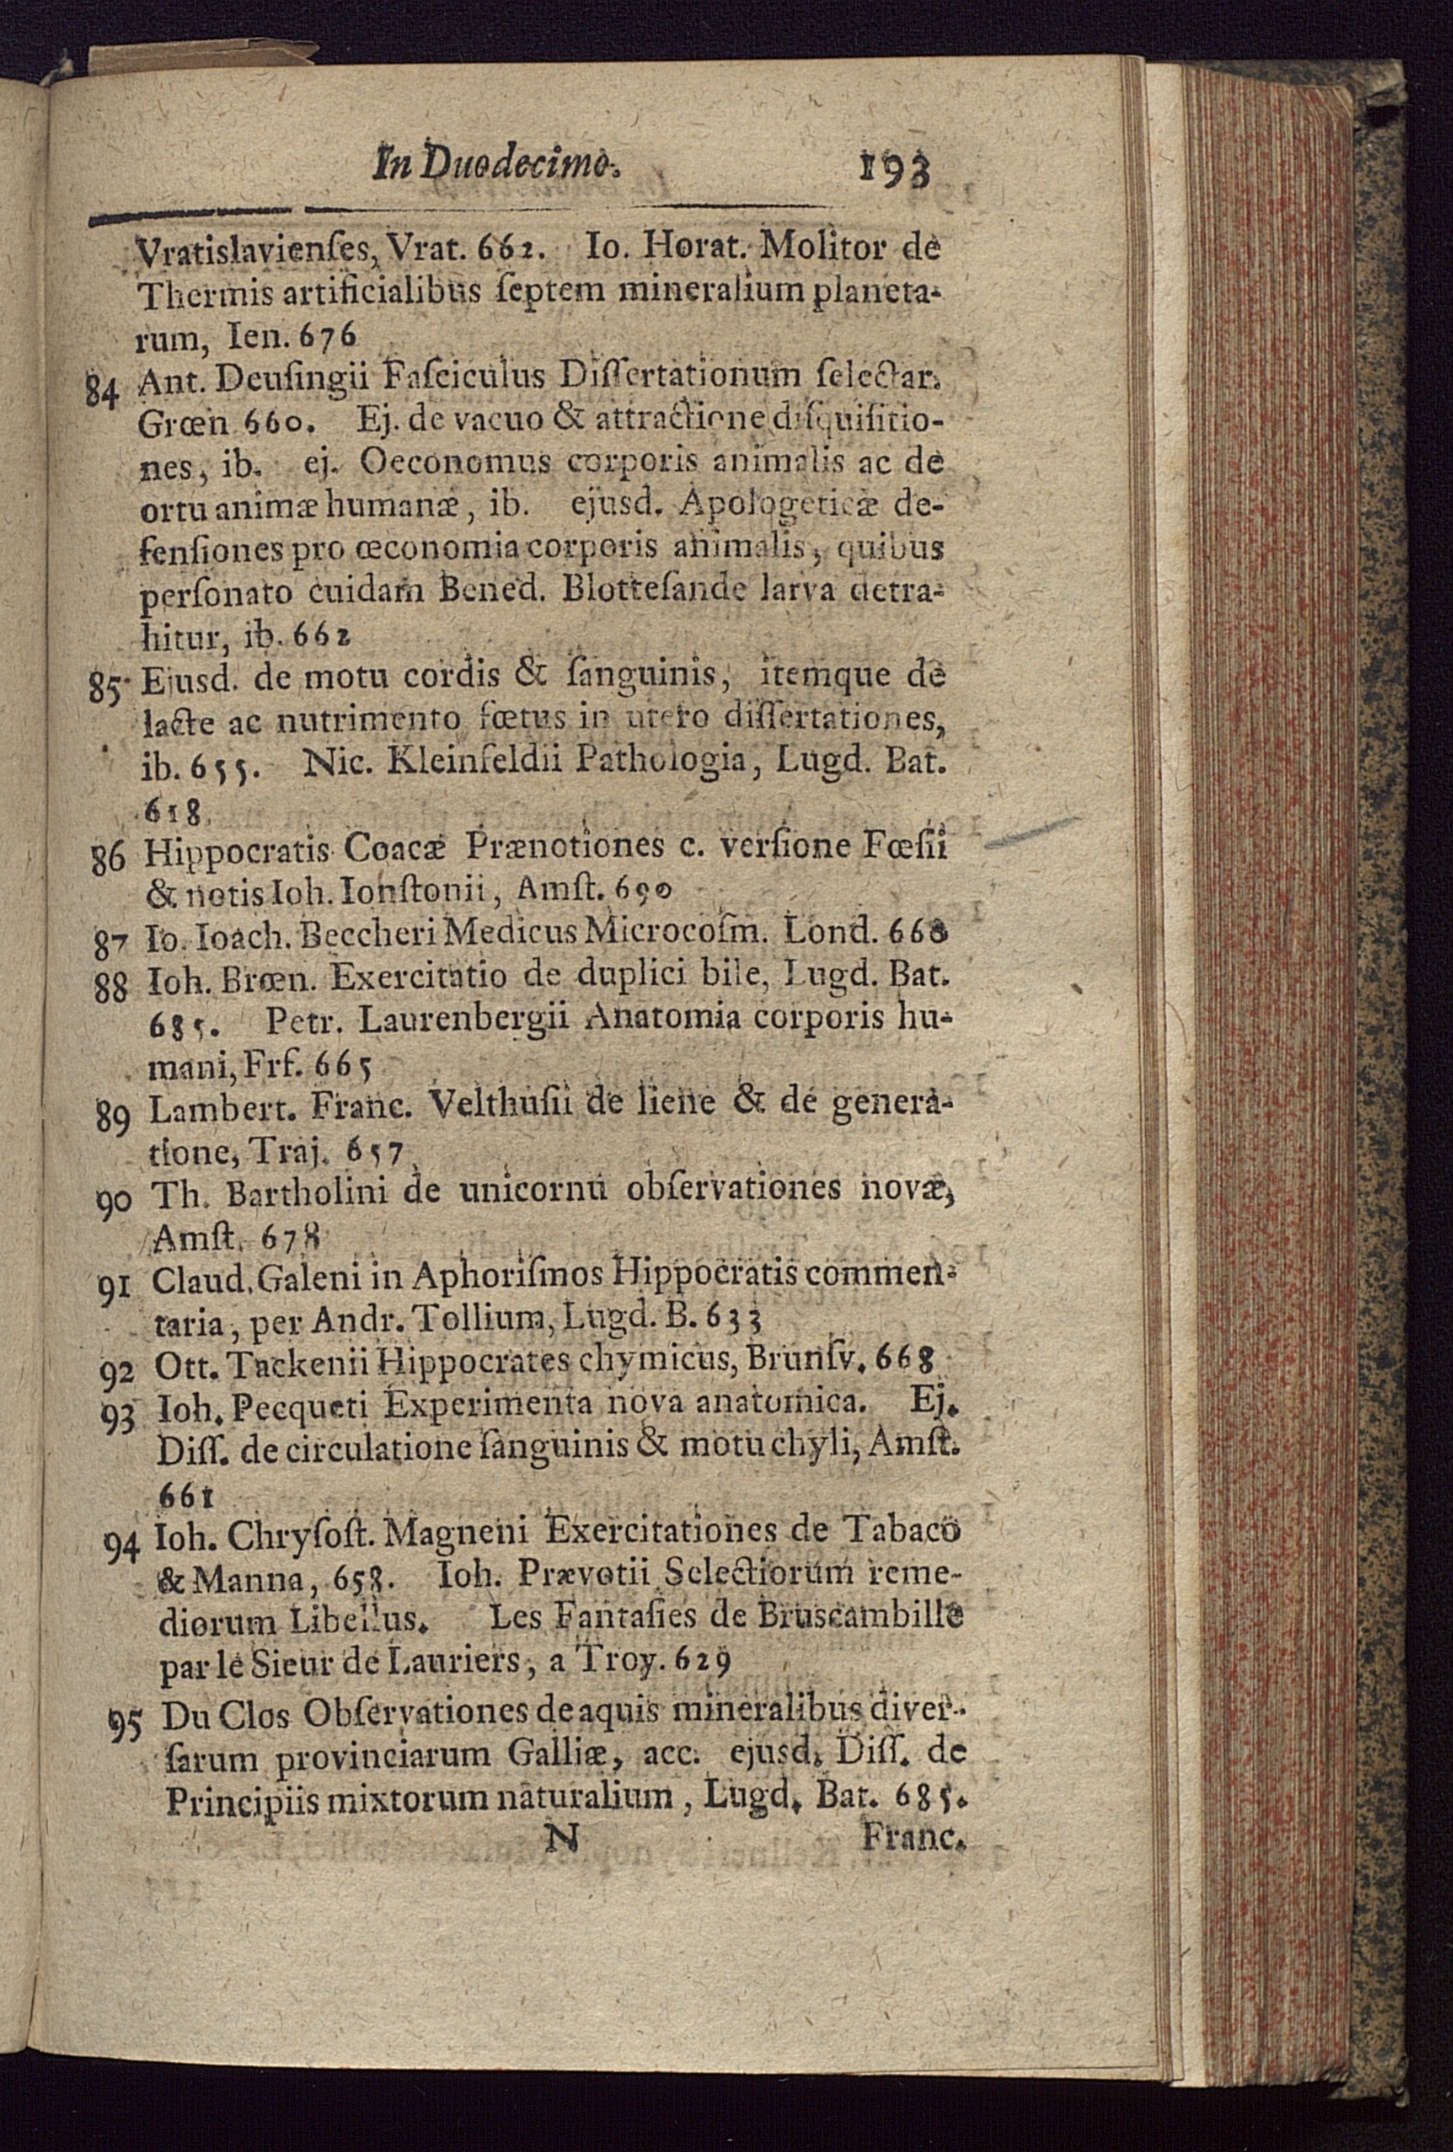 In Duodecimo. 193
Vratislavienſes, Vrat. 662. Io. Horat. Molitor de
Thermis artificialibus ſeptem mineralium planeta-
rum, Ien. 676
84 Ant. Deuſingii Faſciculus Diſſertationum ſelectar.
Grœn 660. Ej. de vacuo & attractione diſquiſitio-
nes, ib. ej. Oeconomus corporis animalis ac de
ortu animæ humanæ, ib. ejusd. Apologeticæ de-
fenſiones pro œconomia corporis animalis, quibus
perſonato cuidam Bened. Blotteſande larva detra-
hitur, ib. 662
85 Ejusd. de motu cordis & ſanguinis, itemque de
lacte ac nutrimento fœtus in utero diſſertationes,
ib. 655. Nic. Kleinfeldii Pathologia, Lugd. Bat.
618
86 Hippocratis Coacæ Prænotiones c. verſione Fœſii
& notis Ioh. Ionſtonii, Amſt. 690
87 Io. Ioach. Beccheri Medicus Microcoſm. Lond. 660
88 Ioh. Brœn. Exercitatio de duplici bile, Lugd. Bat.
685. Petr. Laurenbergii Anatomia corporis hu-
mani, Frf. 665
89 Lambert. Franc. Velthuſii de liene & de genera-
tione, Traj. 657
90 Th. Bartholini de unicornu obſervationes novæ,
Amſt. 678
91 Claud. Galeni in Aphoriſmos Hippocratis commen-
taria, per Andr. Tollium, Lugd. B. 633
92 Ott. Tackenii Hippocrates chymicus, Brunſv. 668
93 Ioh. Pecqueti Experimenta nova anatomica. Ej.
Diſſ. de circulatione ſanguinis & motu chyli, Amſt.
661
94 Ioh. Chryſoſt. Magneni Exercitationes de Tabaco
& Manna, 658. Ioh. Prævotii Selectiorum reme-
diorum Libellus. Les Fantaſies de Bruscambille
par le Sieur de Lauriers, a Troy. 629
95 Du Clos Obſervationes de aquis mineralibus diver-
ſarum provinciarum Galliæ, acc. ejusd. Diſſ. de
Principiis mixtorum naturalium, Lugd. Bat. 685.
N Franc.